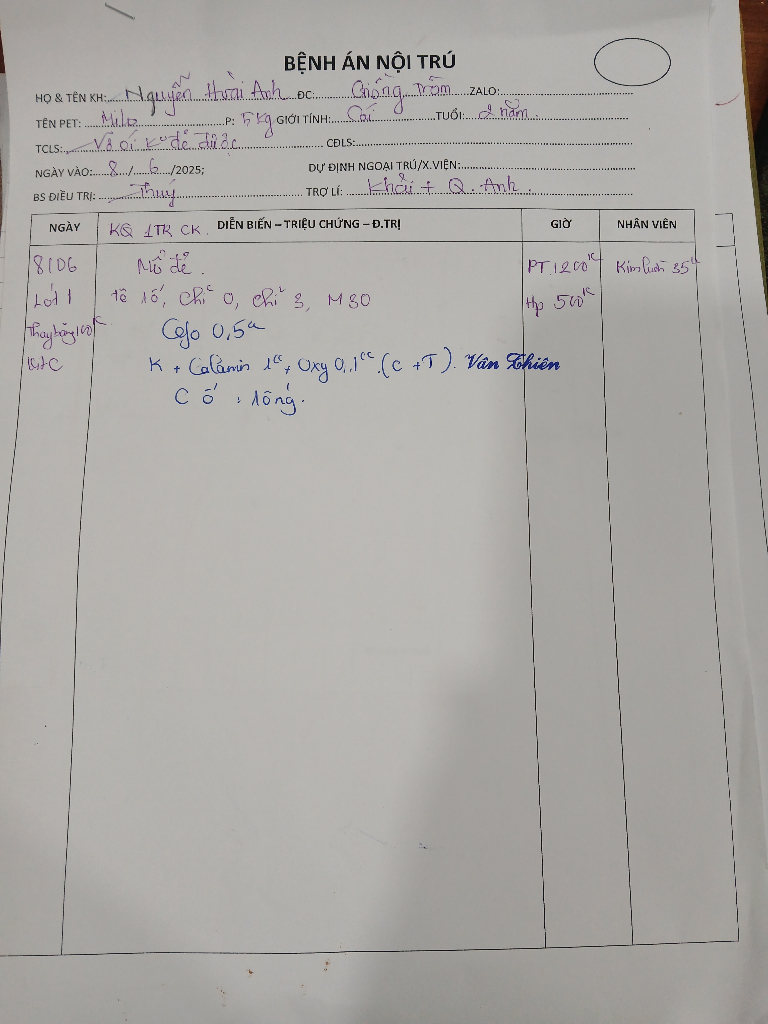 BỆNH ÁN NỘI TRÚ
HỌ & TÊN KH: Nguyễn Hoài Anh ĐC: Chồng Trầm ZALO:
TÊN PET: Milo P: 5 kg GIỚI TÍNH: Cái TUỔI: 2 năm
TCLS: Vỡ ối k đẻ được CĐLS:
NGÀY VÀO: 8 / 6 /2025; DỰ ĐỊNH NGOẠI TRÚ/X.VIỆN:
BS ĐIỀU TRỊ: Thuý TRỢ LÍ: Khải + Q. Anh.
NGÀY KQ 1TR CK. DIỄN BIẾN – TRIỆU CHỨNG – Đ.TRỊ GIỜ NHÂN VIÊN
8/06 Mổ đẻ. PT 1200k Kim luồn 35k
Lót 1 tê 10, chỉ 0, chỉ 3, M30 Hp 500k
Thay băng 100k Cefo 0,5
K + Calamin 1cc + Oxy 0,1cc (C + T). Văn Thiên
C ố 1 ống.